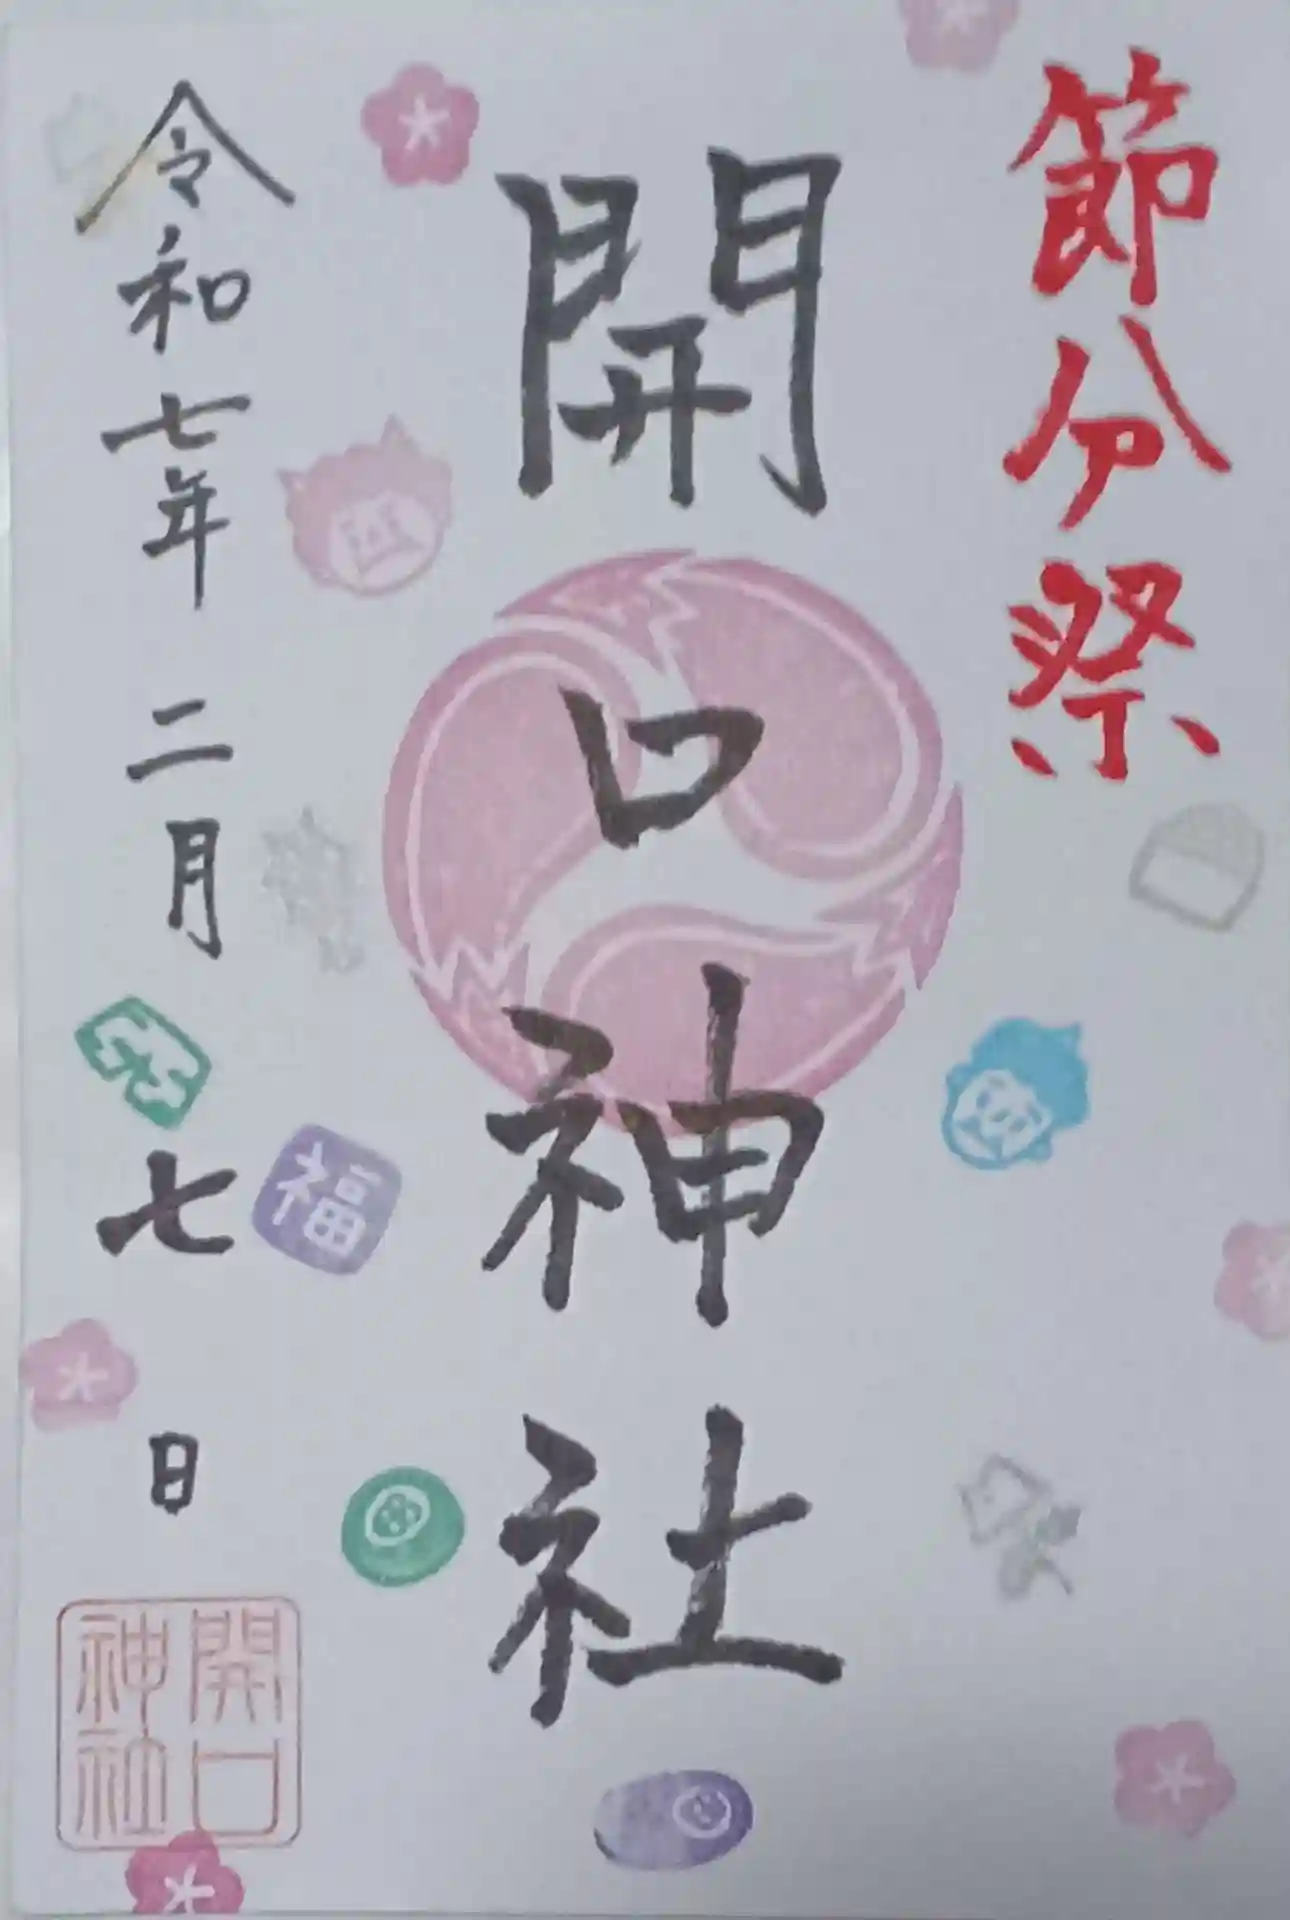 節分祭
開口神社
福
令和七年二月七日
開口
神社